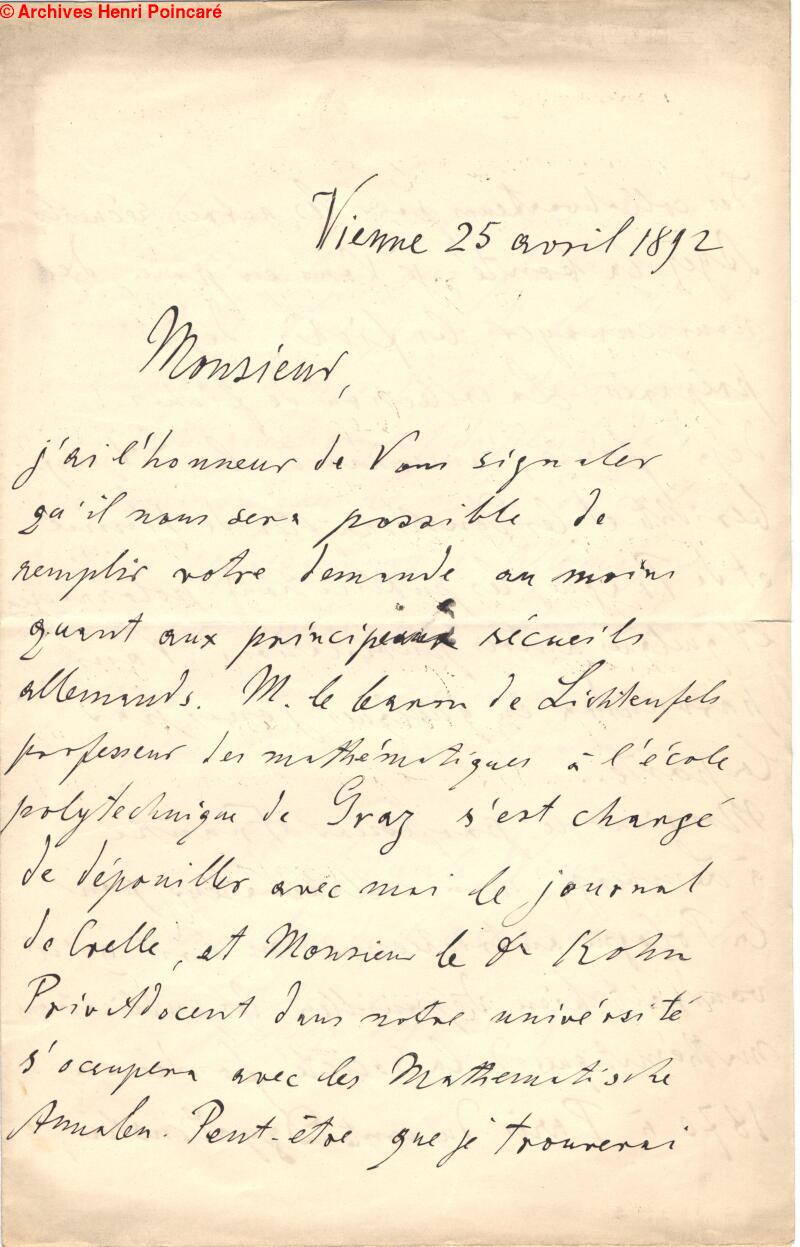 © Archives Henri Poincaré
Vienne 25 avril 1892
Monsieur,
j'ai l'honneur de Vous signaler
qu'il nous sera possible de
remplir votre demande au moins
quant aux principeaux récueils
allemands. M. le baron de Lichtenfels
professeur des mathématiques à l'école
polytechnique de Graz s'est chargé
de dépouiller avec moi le journal
de Crelle, et Monsieur le dr Kohn
Privatdocent dans notre univérsité
s'occupera avec les Mathematische
Annalen. Peut-être que je trouverai